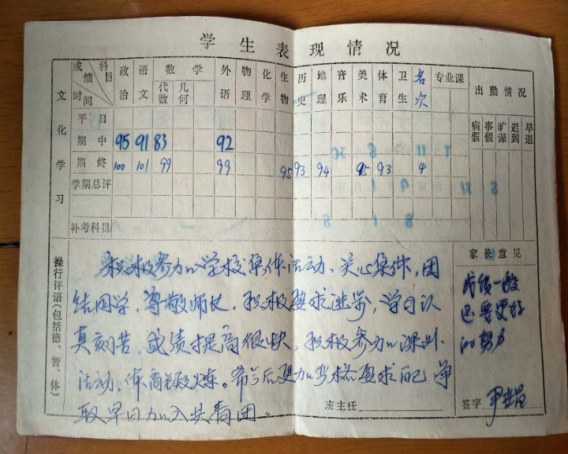 学生表现情况
成绩 科目 时间 政治 语文 数学 代数 几何 外语 物理 化学 生物 历史 地理 音乐 美术 体育 卫生 名次 专业课 出勤情况
病假 事假 旷课 迟到 早退
文化学习
平日
期中 95 91 83 92
期终 100 101 99 99 95 93 94 95 93 4
学期总评
补考科目
操行评语(包括德、智、体)
积极参加学校集体活动、关心集体,团
结同学,尊敬师长,积极要求进步,学习认
真刻苦,成绩提高很快,积极参加课外
活动,体育锻炼。希今后更加严格要求自己争
取早日加入共青团。
班主任
家长意见
成绩一般
还要更好
的努力
签字